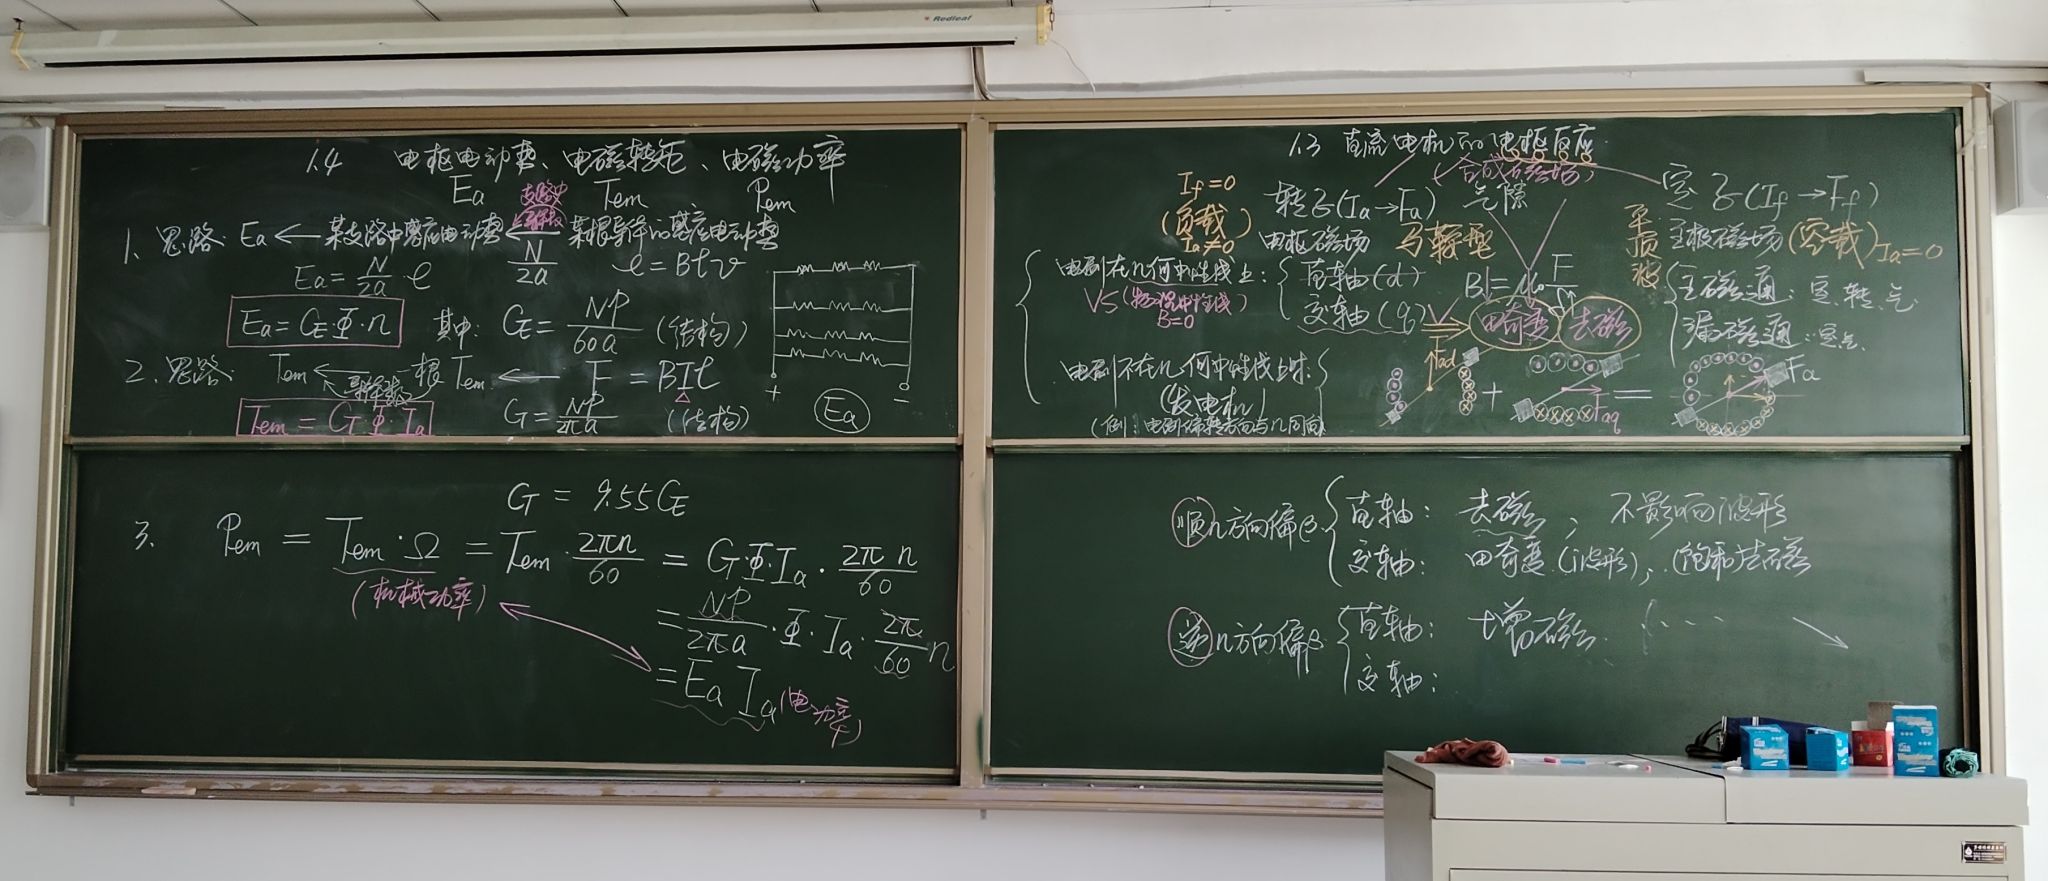 1.4 电枢电动势、电磁转矩、电磁功率
Ea Tem Pem
支路中
导体数
1、思路: Ea ← 某支路中感应电动势 ← N/2a 某根导体的感应电动势
Ea = N/2a · e e = Blv
Ea = CE·Φ·n 其中: CE = NP/60a (结构)
2、思路: Tem ← 导体数 一根Tem ← F = BIl
Tem = CT Φ Ia CT = NP/2πa (结构)
+ Ea -
CT = 9.55CE
3. Pem = Tem·Ω = Tem · 2πn/60 = CT·Φ·Ia · 2πn/60
(机械功率)
= NP/2πa · Φ · Ia · 2π/60 n
= Ea Ia (电功率)
1.3 直流电机的电枢反应
(合成磁场)
If=0
(负载)
Ia≠0
转子(Ia→Fa) 气隙 定子(If→Ff)
电枢磁场 马鞍型
平顶波
主极磁场(空载) Ia=0
电刷在几何中性线上: 直轴(d)
交轴(q)
VS(物理中性线)
B=0
B = μ0 F/δ
畸变 去磁
主磁通: 定、转、气
漏磁通: 定气
电刷不在几何中性线上时:
(发电机)
(例: 电刷偏转方向与n同向)
Fad + Faq = Fa
顺n方向偏β 直轴: 去磁; 不影响波形
交轴: 畸变(波形); (饱和)去磁
逆n方向偏β 直轴: 增磁 ····
交轴:
Redleaf